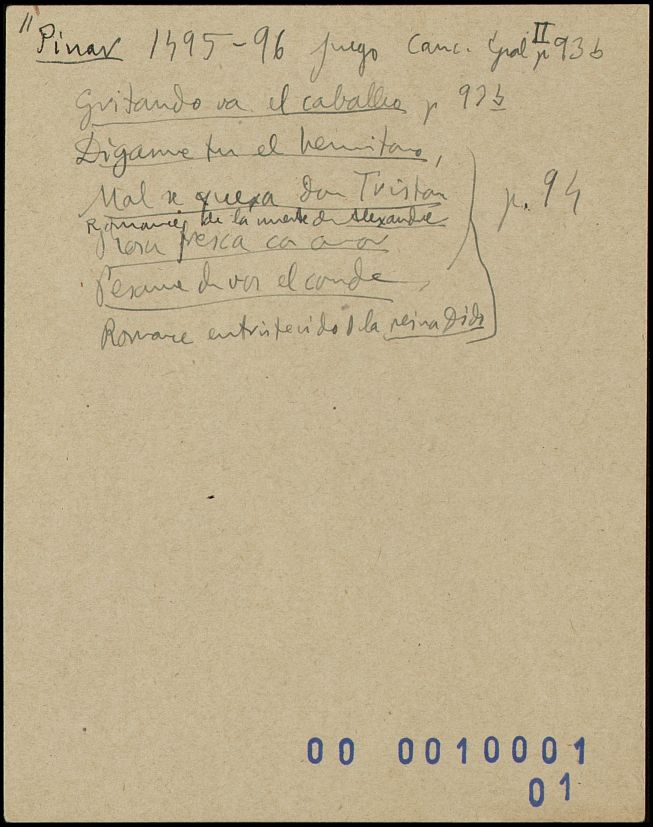 11
Pinar 1495-96 juego Canc. Gral II p 93 b
Gritando va el caballero p 93 b
Digasme tu el hermitano,
Mal se quexa don Tristan
p. 94
Romance de la muerte de Alexandre
rosa fresca con amor
Pésame de vos el conde,
Romance entristecido d la reina Dido
00 0010001
01